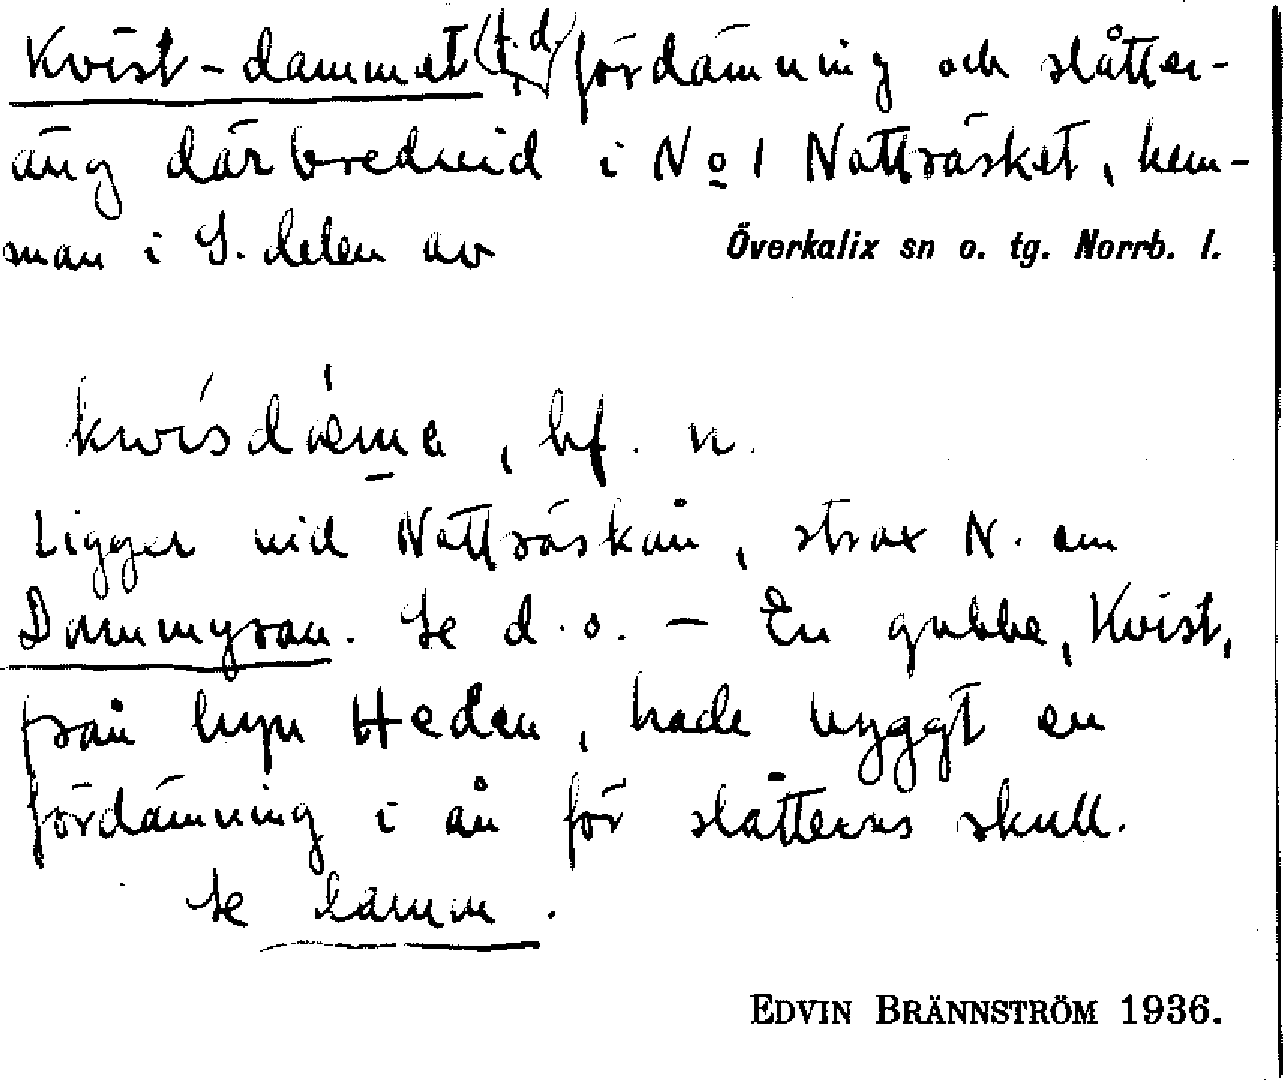 Kvist-dammet (t.d.) fördämning och slåtter-
äng därbredvid i No 1 Nattträsket, hem-
man i S. delen av Överkalix sn o. tg. Norrb. l.
kwisdæma, bf. n.
Ligger vid Nattträskån, strax N. om
Dammyran. Se d.o. – En gubbe, Kvist,
från byn Heden, hade byggt en
fördämning i ån för slåtterns skull.
Se damm.
EDVIN BRÄNNSTRÖM 1936.